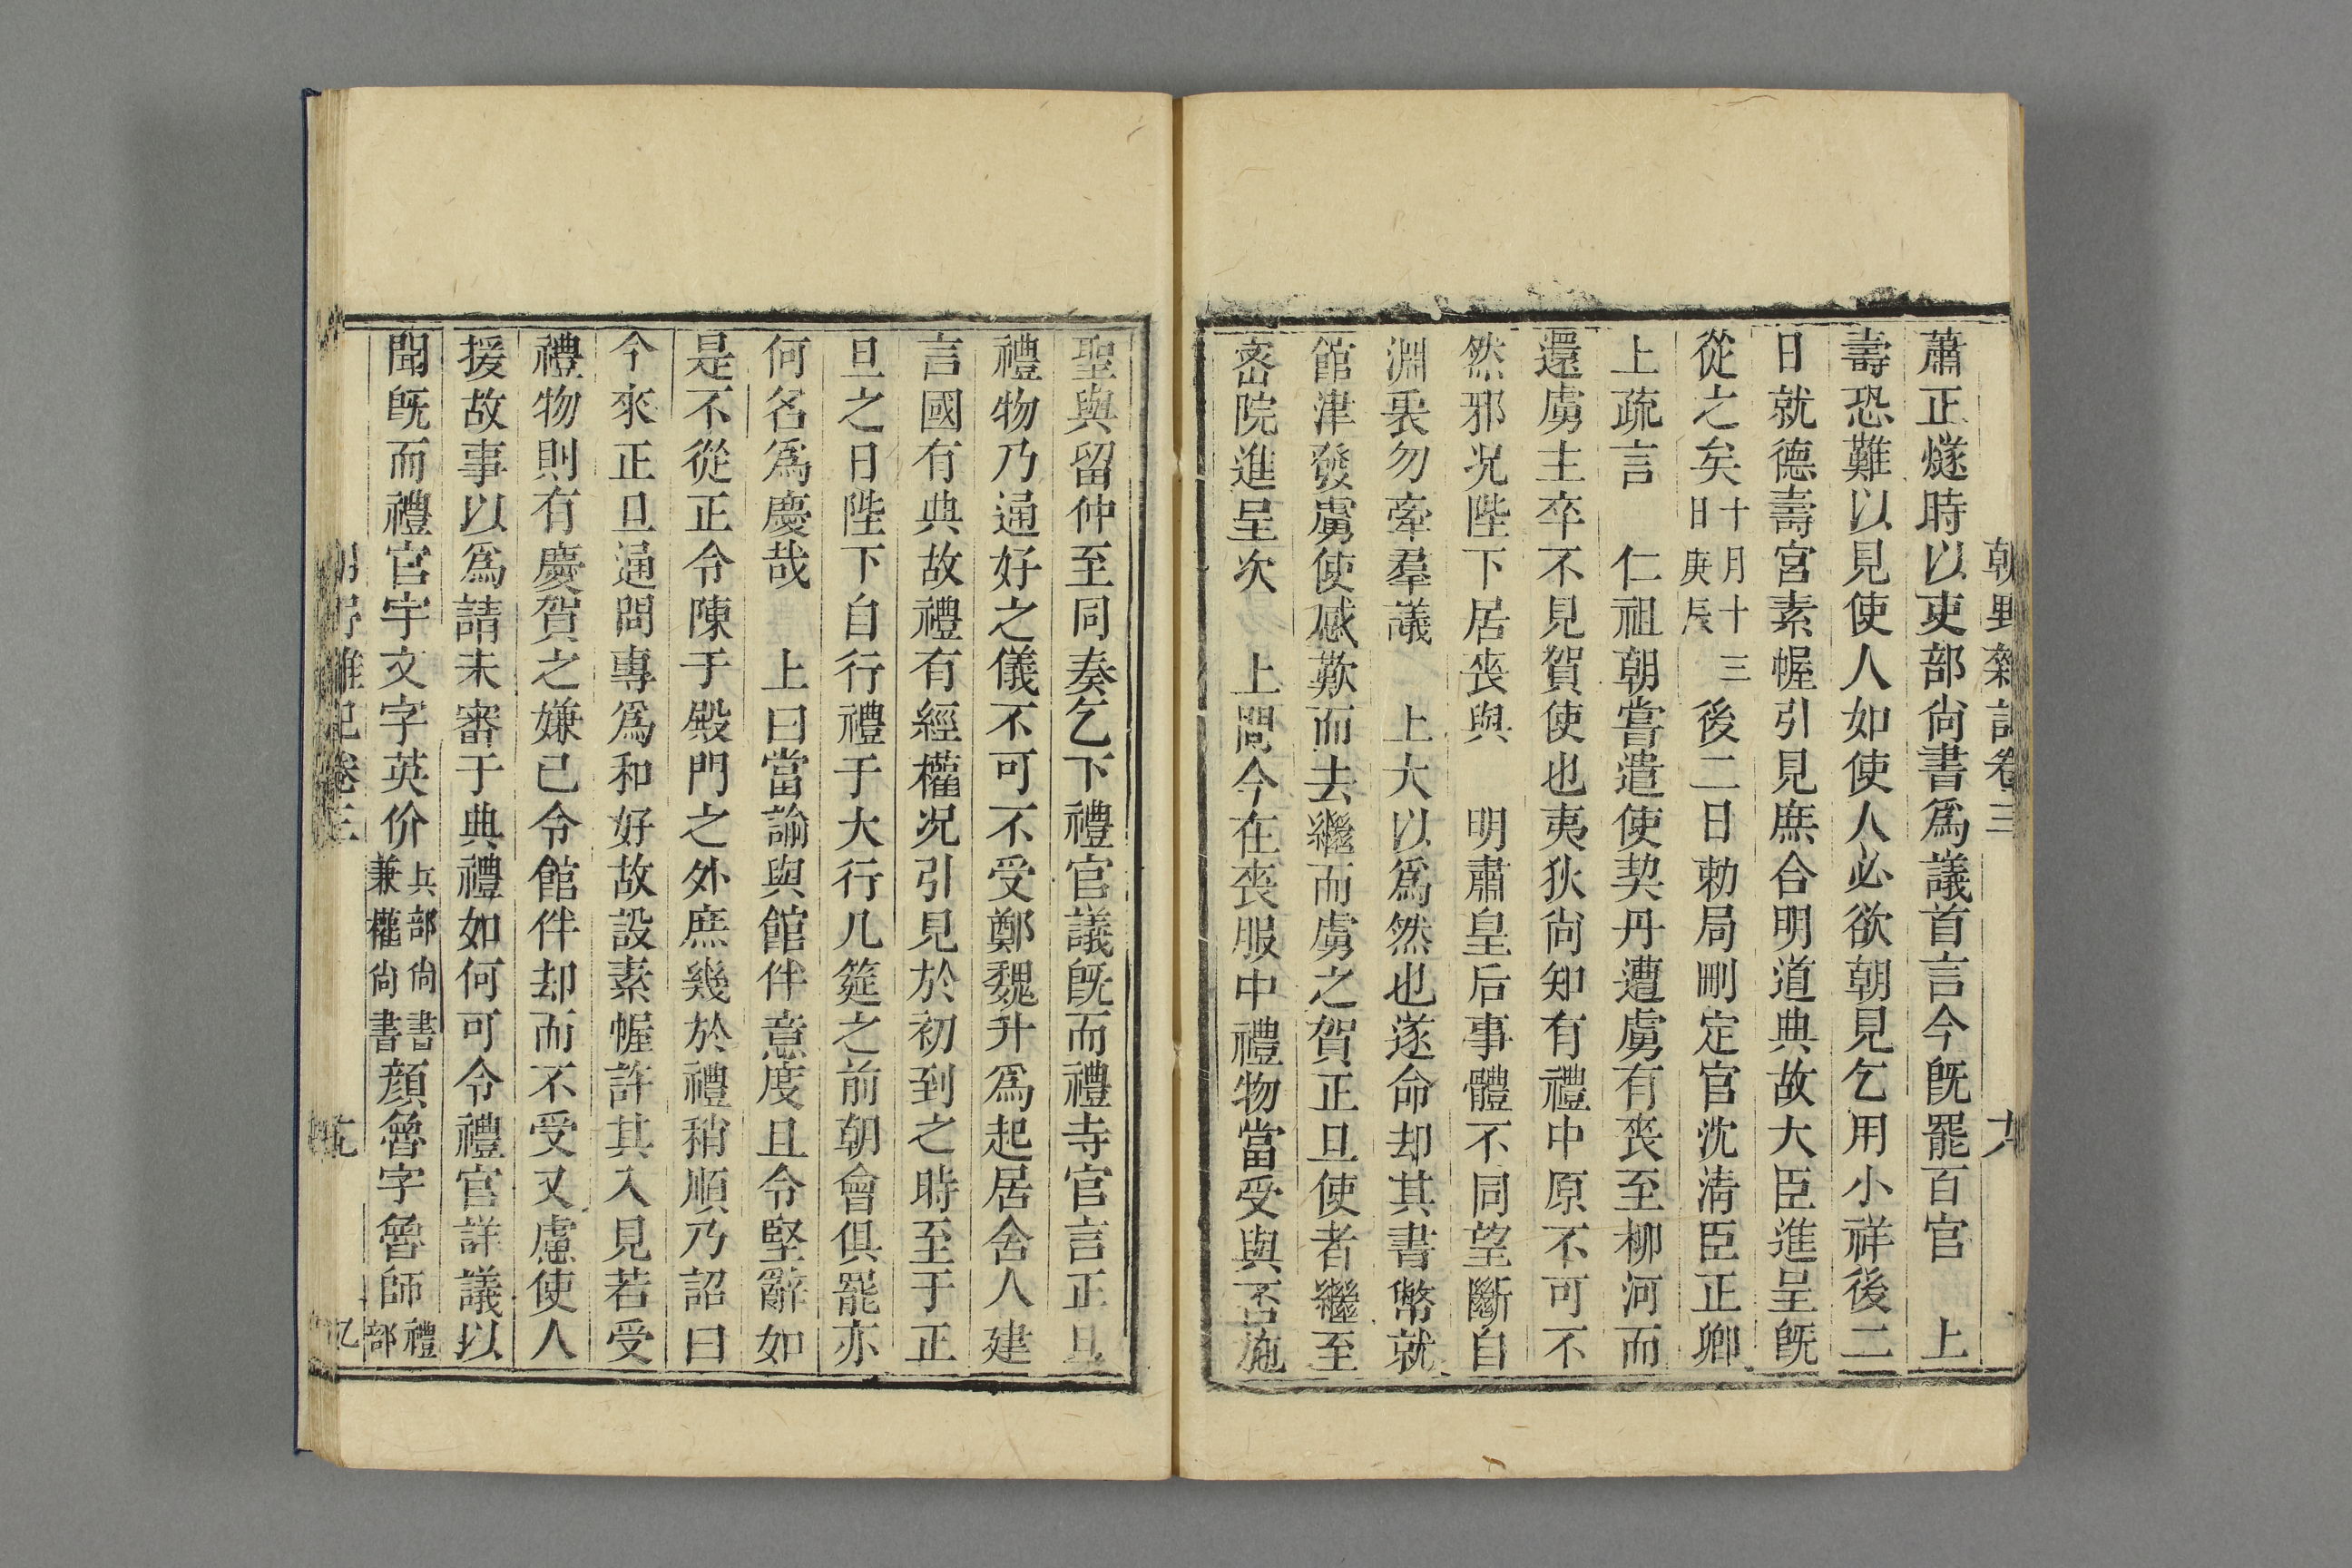 朝野雜記卷三
蕭正燧時以吏部尙書爲議首言今旣罷百官　上
壽恐難以見使人如使人必欲朝見乞用小祥後二
日就德壽宮素幄引見庶合明道典故大臣進呈旣
從之矣十月十三日庚辰後二日勅局刪定官沈淸臣正卿
上疏言　仁祖朝嘗遣使契丹遭虜有喪至柳河而
還虜主卒不見賀使也夷狄尙知有禮中原不可不
然邪况陛下居喪與　明肅皇后事體不同望斷自
淵衷勿牽羣議　上大以爲然也遂命却其書幣就
館津發虜使感歎而去繼而虜之賀正旦使者繼至
宻院進呈次　上問今在喪服中禮物當受與否施
聖與留仲至同奏乞下禮官議旣而禮寺官言正旦
禮物乃通好之儀不可不受鄭魏升爲起居舍人建
言國有典故禮有經權况引見於初到之時至于正
旦之日陛下自行禮于大行几筵之前朝會俱罷亦
何名爲慶哉　上曰當諭與館伴意度且令堅辭如
是不從正令陳于殿門之外庶幾於禮稍順乃詔曰
今來正旦通問專爲和好故設素幄許其入見若受
禮物則有慶賀之嫌已令館伴却而不受又慮使人
援故事以爲請未審于典禮如何可令禮官詳議以
聞旣而禮官宇文字英价兵部尙書兼權尙書顏魯字魯師禮部
朝野雜記卷三